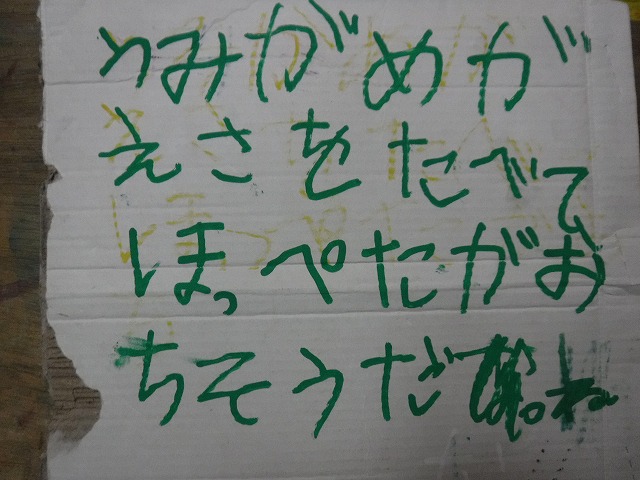 うみがめが
えさをたべて
ほっぺたがお
ちそうだ